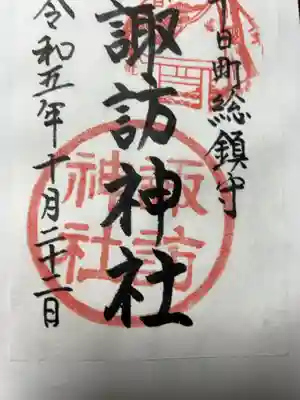 十日町総鎮守
諏訪神社
諏訪
神社
令和五年十月二十二日